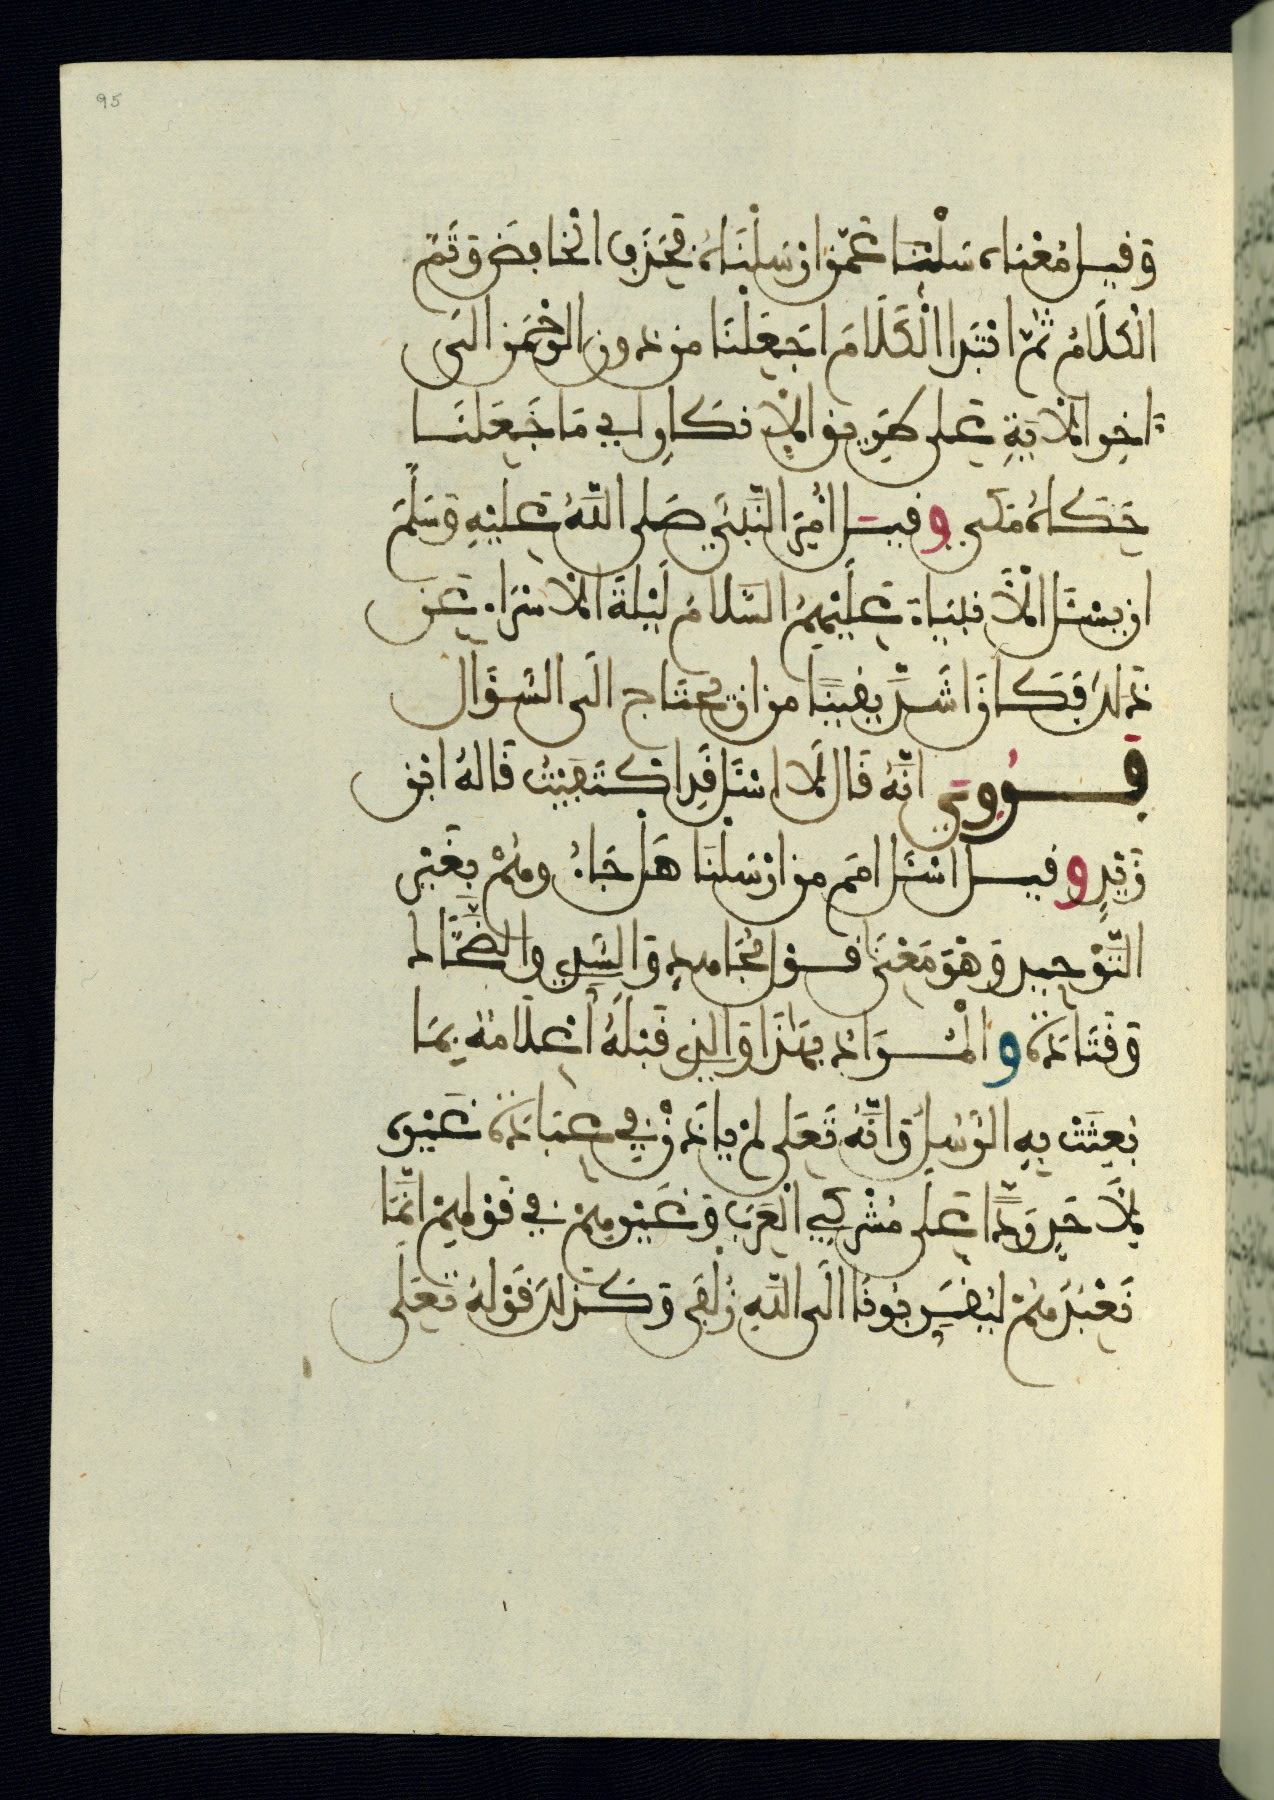 95
وَقيل مَعْناه سَلْنا عَمّن ارْسَلْنَاه فحَذَف الْخافِضَ وَتَمّ
الْكلَامُ ثُمّ ابْتَدا الْكَلَامَ اجَعَلْنَا من دون الرّحْمن الى
اخر الْآيَةِ عَلى طريق الْإنكارِ اي مَا جَعَلْنَا
حَكاهُ مَكي وقيل اُمِرَ النَّبيّ صَلى اللّهُ عَليْهِ وَسَلّمَ
ان يسْئَل الْأنبيَاءَ عَلَيْهِمُ السَّلامُ لَيْلَةَ الْاسْرَاء عَن
ذلك فَكانَ اشَدّ يقينًا من ان يحْتَاج الَى السّؤَال
فرُوي انّهُ قَال لَا اسْئَل قَدِ اكْتَفَيْتُ قَالهُ ابْن
زَيْدٍ وقيل اسْئَل امَم من ارْسَلْنَا هَلْ جَاءُوهُمْ بِغَيْر
التَّوْحِيدِ وَهْوَ مَعْنَى قوْل مُجَاهِدٍ وَالسّدي والضّحّاك
وَقَتَادَةَ والْمُرَادُ بهَذَا وَالذي قَبْلَهُ اعْلَامُهُ بِمَا
بُعِثَتْ بِهِ الرُّسُل وَانّهُ تَعَلى لمْ ياذَنْ في عِبَادَةِ غَيْره
لِأَحَدٍ رَدًّا عَلى مُشْركي الْعَرَب وَغَيْرهِمْ في قَوْلهِمْ انّمَا
نَعْبُدُهُمْ ليُقَرّبُونَا الَى اللّهِ زُلْفَى وَكَذلك قَوْلهُ تَعَلى